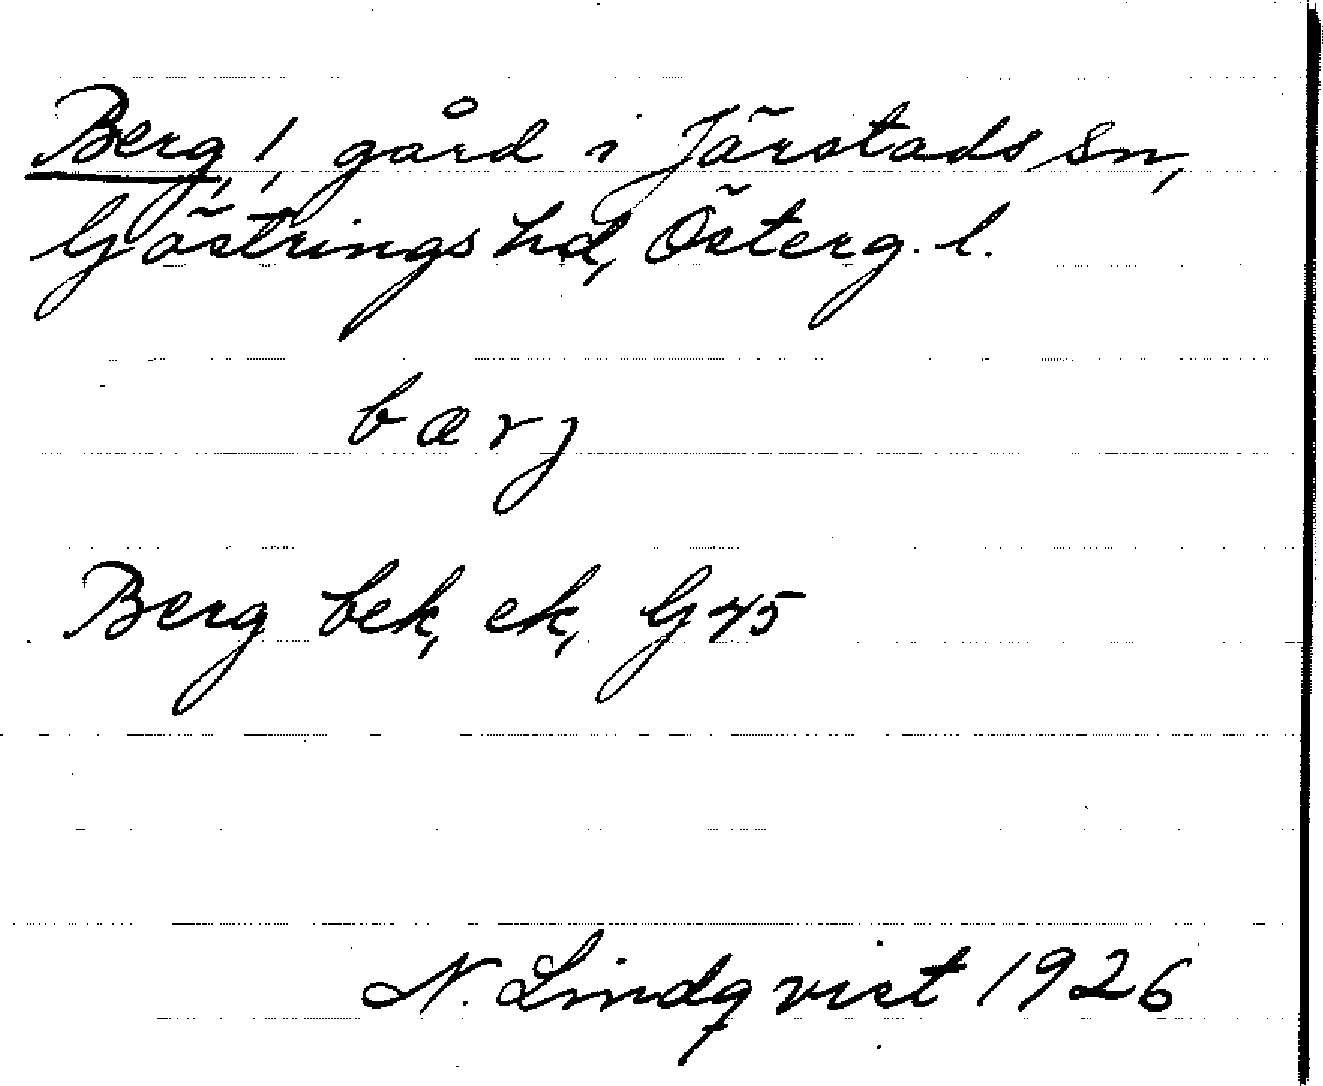 Berg, 1, gård i Järstads sn,
Göstrings hd, Österg. l.
bærj
Berg bek, ek, G45
N. Lindqvist 1926